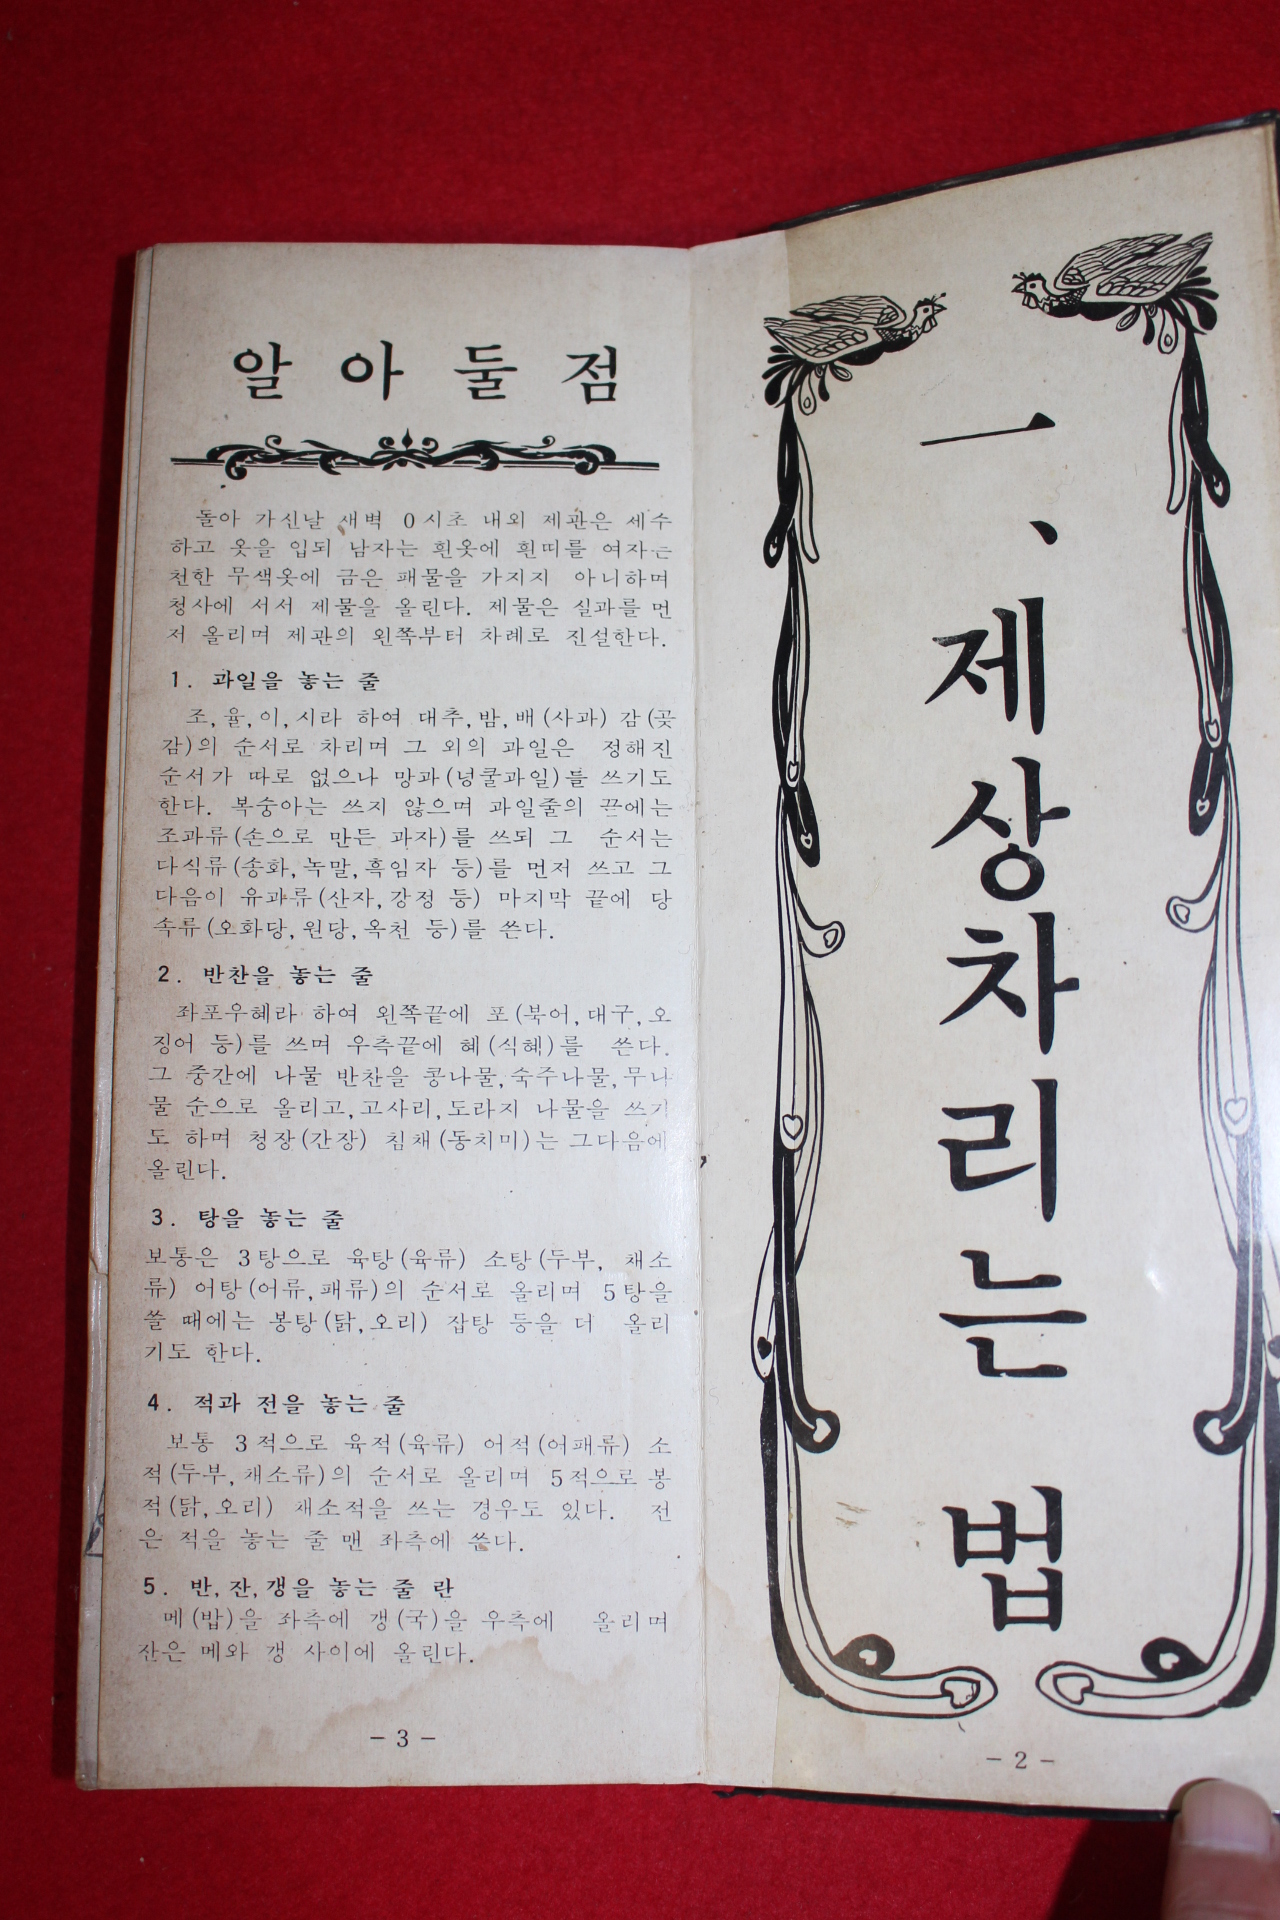 一、제상차리는 법
- 2 -
알아둘점
돌아 가신날 새벽 0시초 내외 제관은 세수
하고 옷을 입되 남자는 흰옷에 흰띠를 여자는
천한 무색옷에 금은 패물을 가지지 아니하며
청사에 서서 제물을 올린다. 제물은 실과를 먼
저 올리며 제관의 왼쪽부터 차례로 진설한다.
1. 과일을 놓는 줄
조, 율, 이, 시라 하여 대추, 밤, 배(사과) 감(곶
감)의 순서로 차리며 그 외의 과일은 정해진
순서가 따로 없으나 망과(넝쿨과일)를 쓰기도
한다. 복숭아는 쓰지 않으며 과일줄의 끝에는
조과류(손으로 만든 과자)를 쓰되 그 순서는
다식류(송화, 녹말, 흑임자 등)를 먼저 쓰고 그
다음이 유과류(산자, 강정 등) 마지막 끝에 당
속류(오화당, 원당, 옥천 등)를 쓴다.
2. 반찬을 놓는 줄
좌포우혜라 하여 왼쪽끝에 포(북어, 대구, 오
징어 등)를 쓰며 우측끝에 혜(식혜)를 쓴다.
그 중간에 나물 반찬을 콩나물, 숙주나물, 무나
물 순으로 올리고, 고사리, 도라지 나물을 쓰기
도 하며 청장(간장) 침채(동치미)는 그다음에
올린다.
3. 탕을 놓는 줄
보통은 3탕으로 육탕(육류) 소탕(두부, 채소
류) 어탕(어류, 패류)의 순서로 올리며 5탕을
쓸 때에는 봉탕(닭, 오리) 잡탕 등을 더 올리
기도 한다.
4. 적과 전을 놓는 줄
보통 3적으로 육적(육류) 어적(어패류) 소
적(두부, 채소류)의 순서로 올리며 5적으로 봉
적(닭, 오리) 채소적을 쓰는 경우도 있다. 전
은 적을 놓는 줄 맨 좌측에 쓴다.
5. 반, 잔, 갱을 놓는 줄 란
메(밥)을 좌측에 갱(국)을 우측에 올리며
잔은 메와 갱 사이에 올린다.
- 3 -